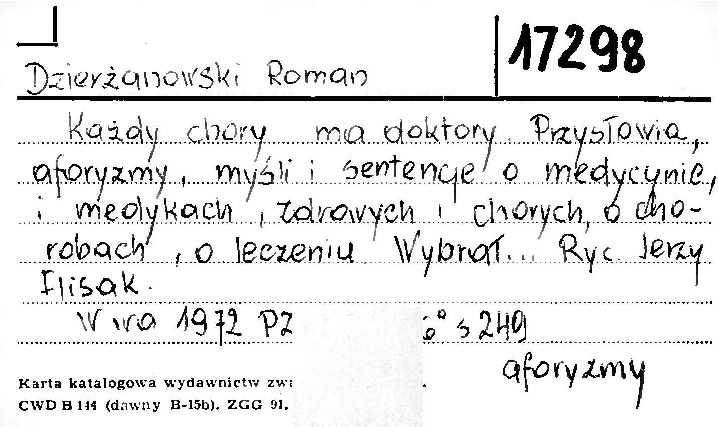 17298
Dzierżanowski Roman
Każdy chory ma doktory. Przysłowia,
aforyzmy, myśli i sentencje o medycynie,
i medykach, zdrowych i chorych, o cho-
robach, o leczeniu Wybrał... Ryc Jerzy
Flisak.
W wa 1972 PZ 6° s 249
aforyzmy
Karta katalogowa wydawnictw zw:
CWD B 144 (dawny B-15b). ZGG 91.